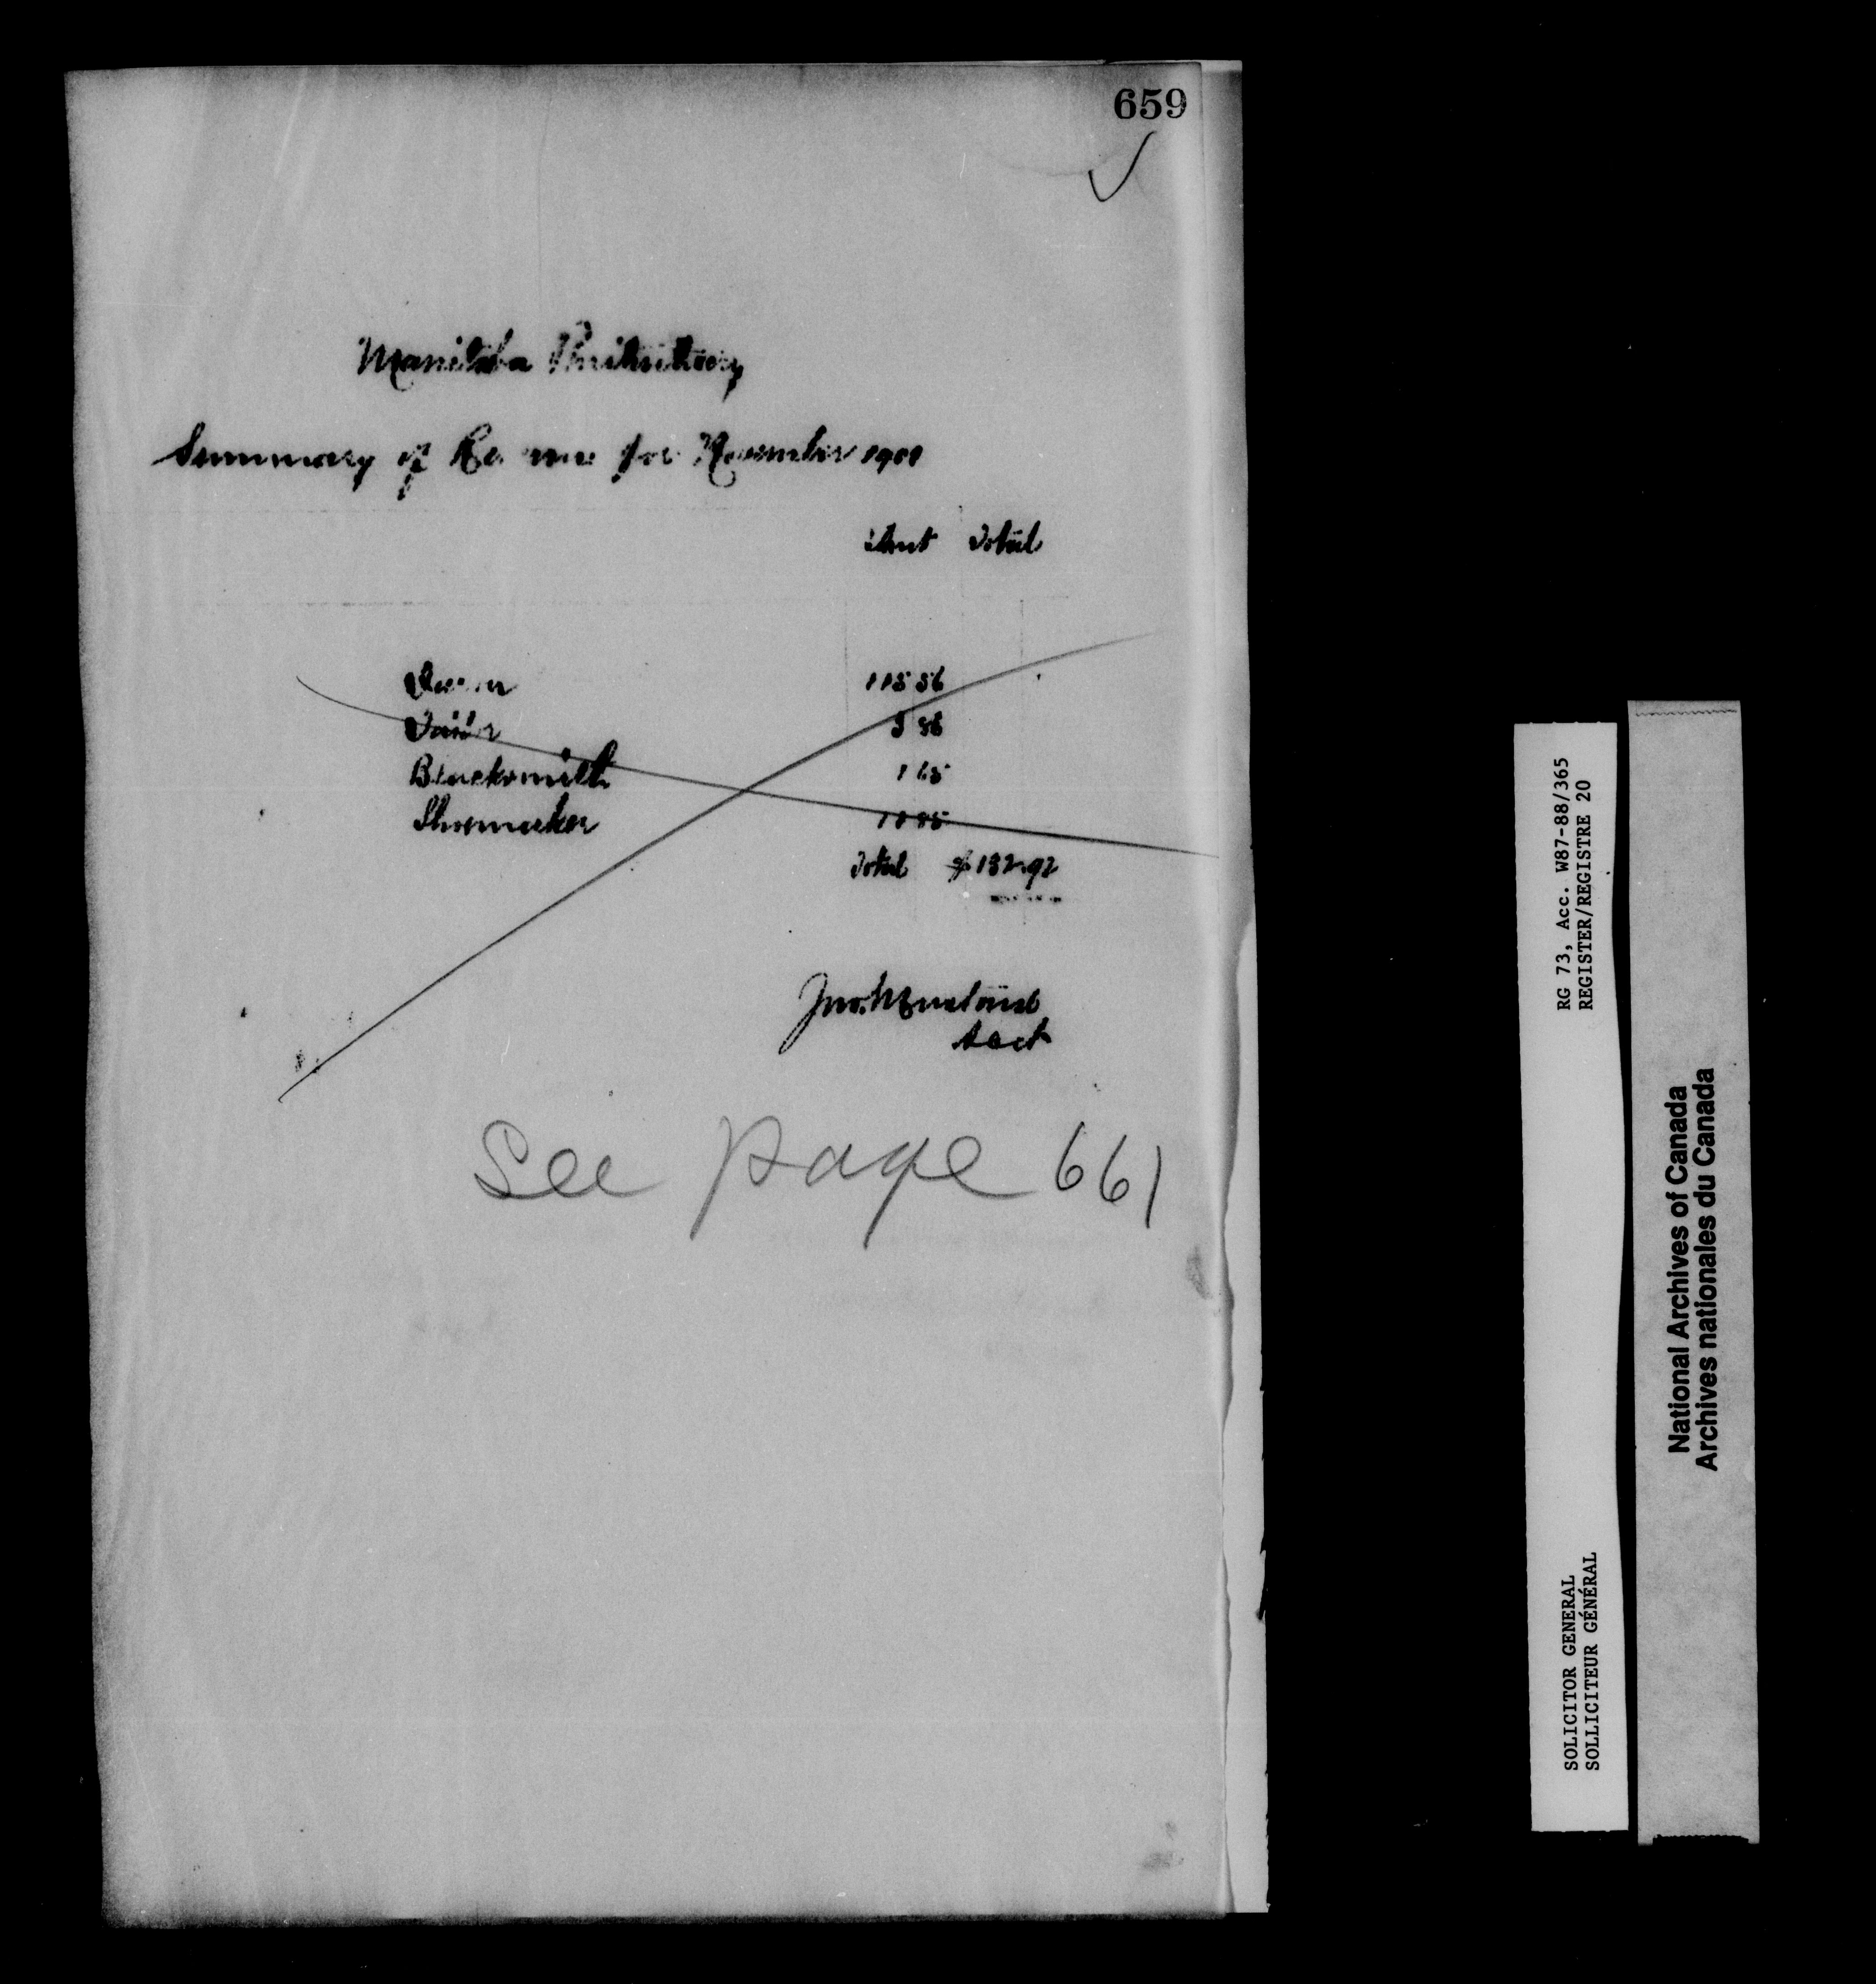 659
Manitoba Penitentiary
Summary of Revenue for November 1901
Amt Total
115 56
Tailor
Blacksmith 1 65
Shoemaker
Total $132.92
Acct
See page 661
RG 73, Acc. W87-88/365
REGISTER/REGISTRE 20
SOLICITOR GENERAL
SOLLICITEUR GÉNÉRAL
National Archives of Canada
Archives nationales du Canada